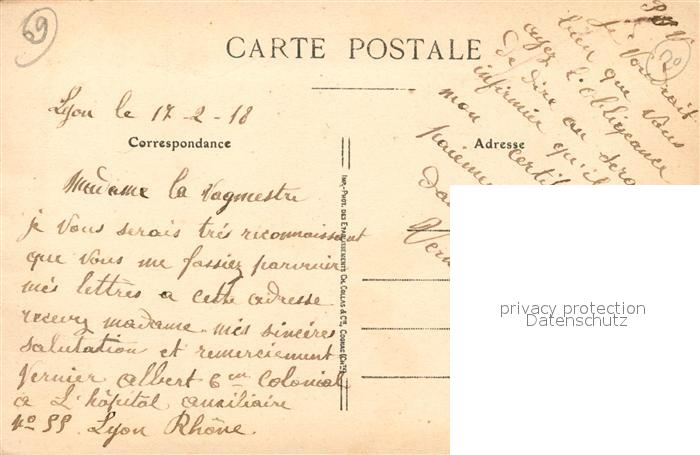 69
CARTE POSTALE
Lyon le 17-2-18
Correspondance
Adresse
Madame la Vagmestre
je vous serais très reconnaissant
que vous me fassiez parvenir
més lettres a cette adresse
recevez madame més sincéres
salutation et remerciement
Vernier albert 6em Colonial
a L'hôpital auxiliaire
no 55 Lyon Rhône.
IMP.-PHOT. DES ETABLISSEMENTS CH. COLLAS & Cie, COGNAC
je voudrait
bien que vous
ayez l'obligeance
de dire au
infirmier qu'il
mon
20
privacy protection
Datenschutz